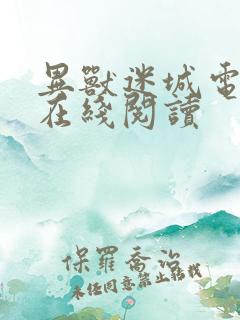 異獸迷城電
在綫閱讀
保羅喬治
未經同意禁止轉載